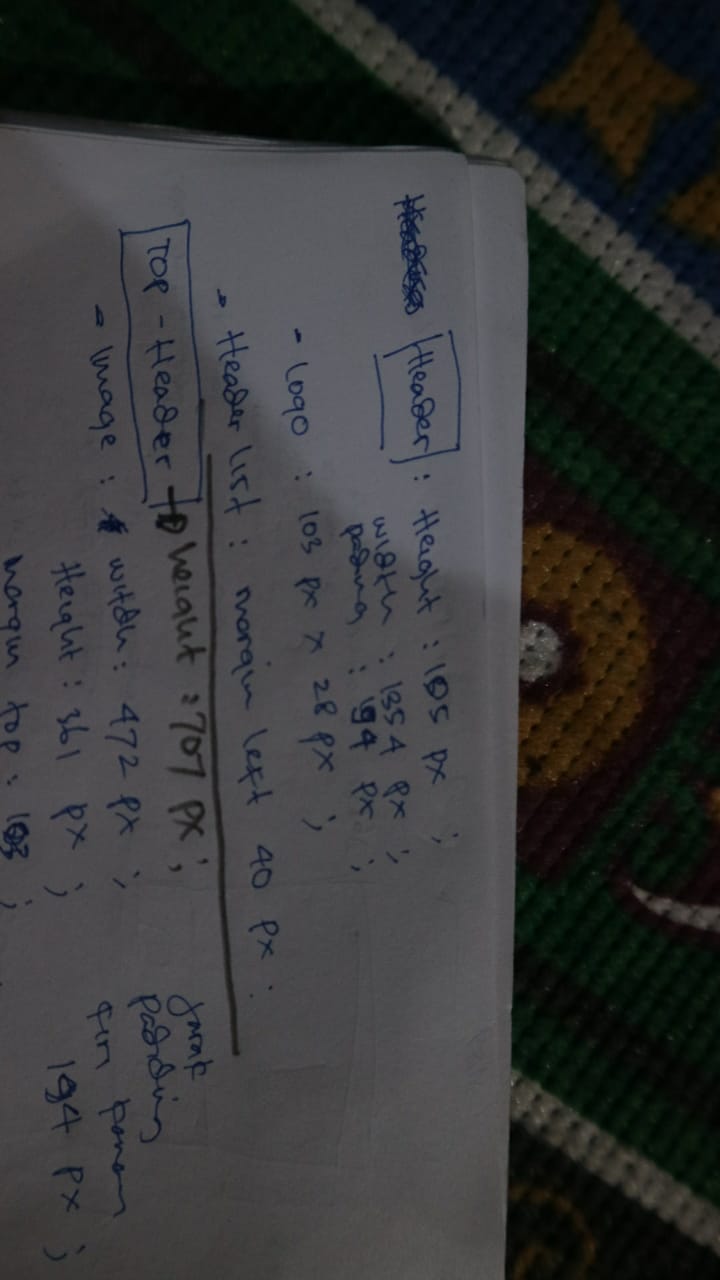 Header : Height : 105 px ;
width : 1354 px ;
padding : 194 px ;
- Logo : 103 px x 28 px ;
- Header list : margin left 40 px ;
TOP - Header → height : 707 px ;
- Image : width : 472 px ;
Height : 361 px ;
margin top : 103 ;
Jarak
padding
kiri kanan
194 px ;